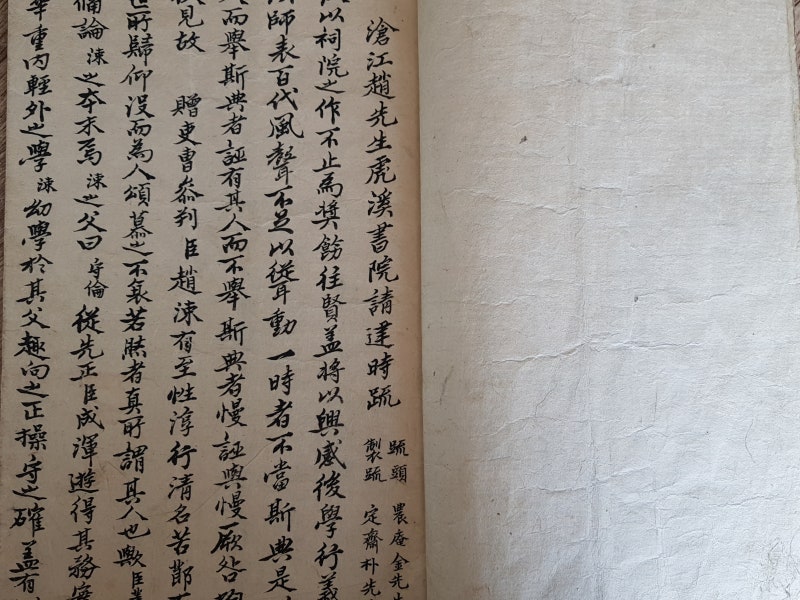 滄江趙先生虎溪書院請建時疏
疏頭 農庵金先生
製疏 定齋朴先
以祠院之作不止為奬餙往賢盖將以興感後學行義
師表百代風聲不足以從耳動一時者不當斯典是
而舉斯典者誣有其人而不舉斯典者慢誣與慢厥咎
見故 贈吏曹叅判臣趙涑有至性淳行清名苦節
所歸仰没而為人頌慕之不衰若脁者真所謂其人也歟臣
備論涑之本末焉涑之父曰守倫從先正臣成渾遊得其務實
華重内輕外之學涑幼學於其父趣向之正操守之確盖有